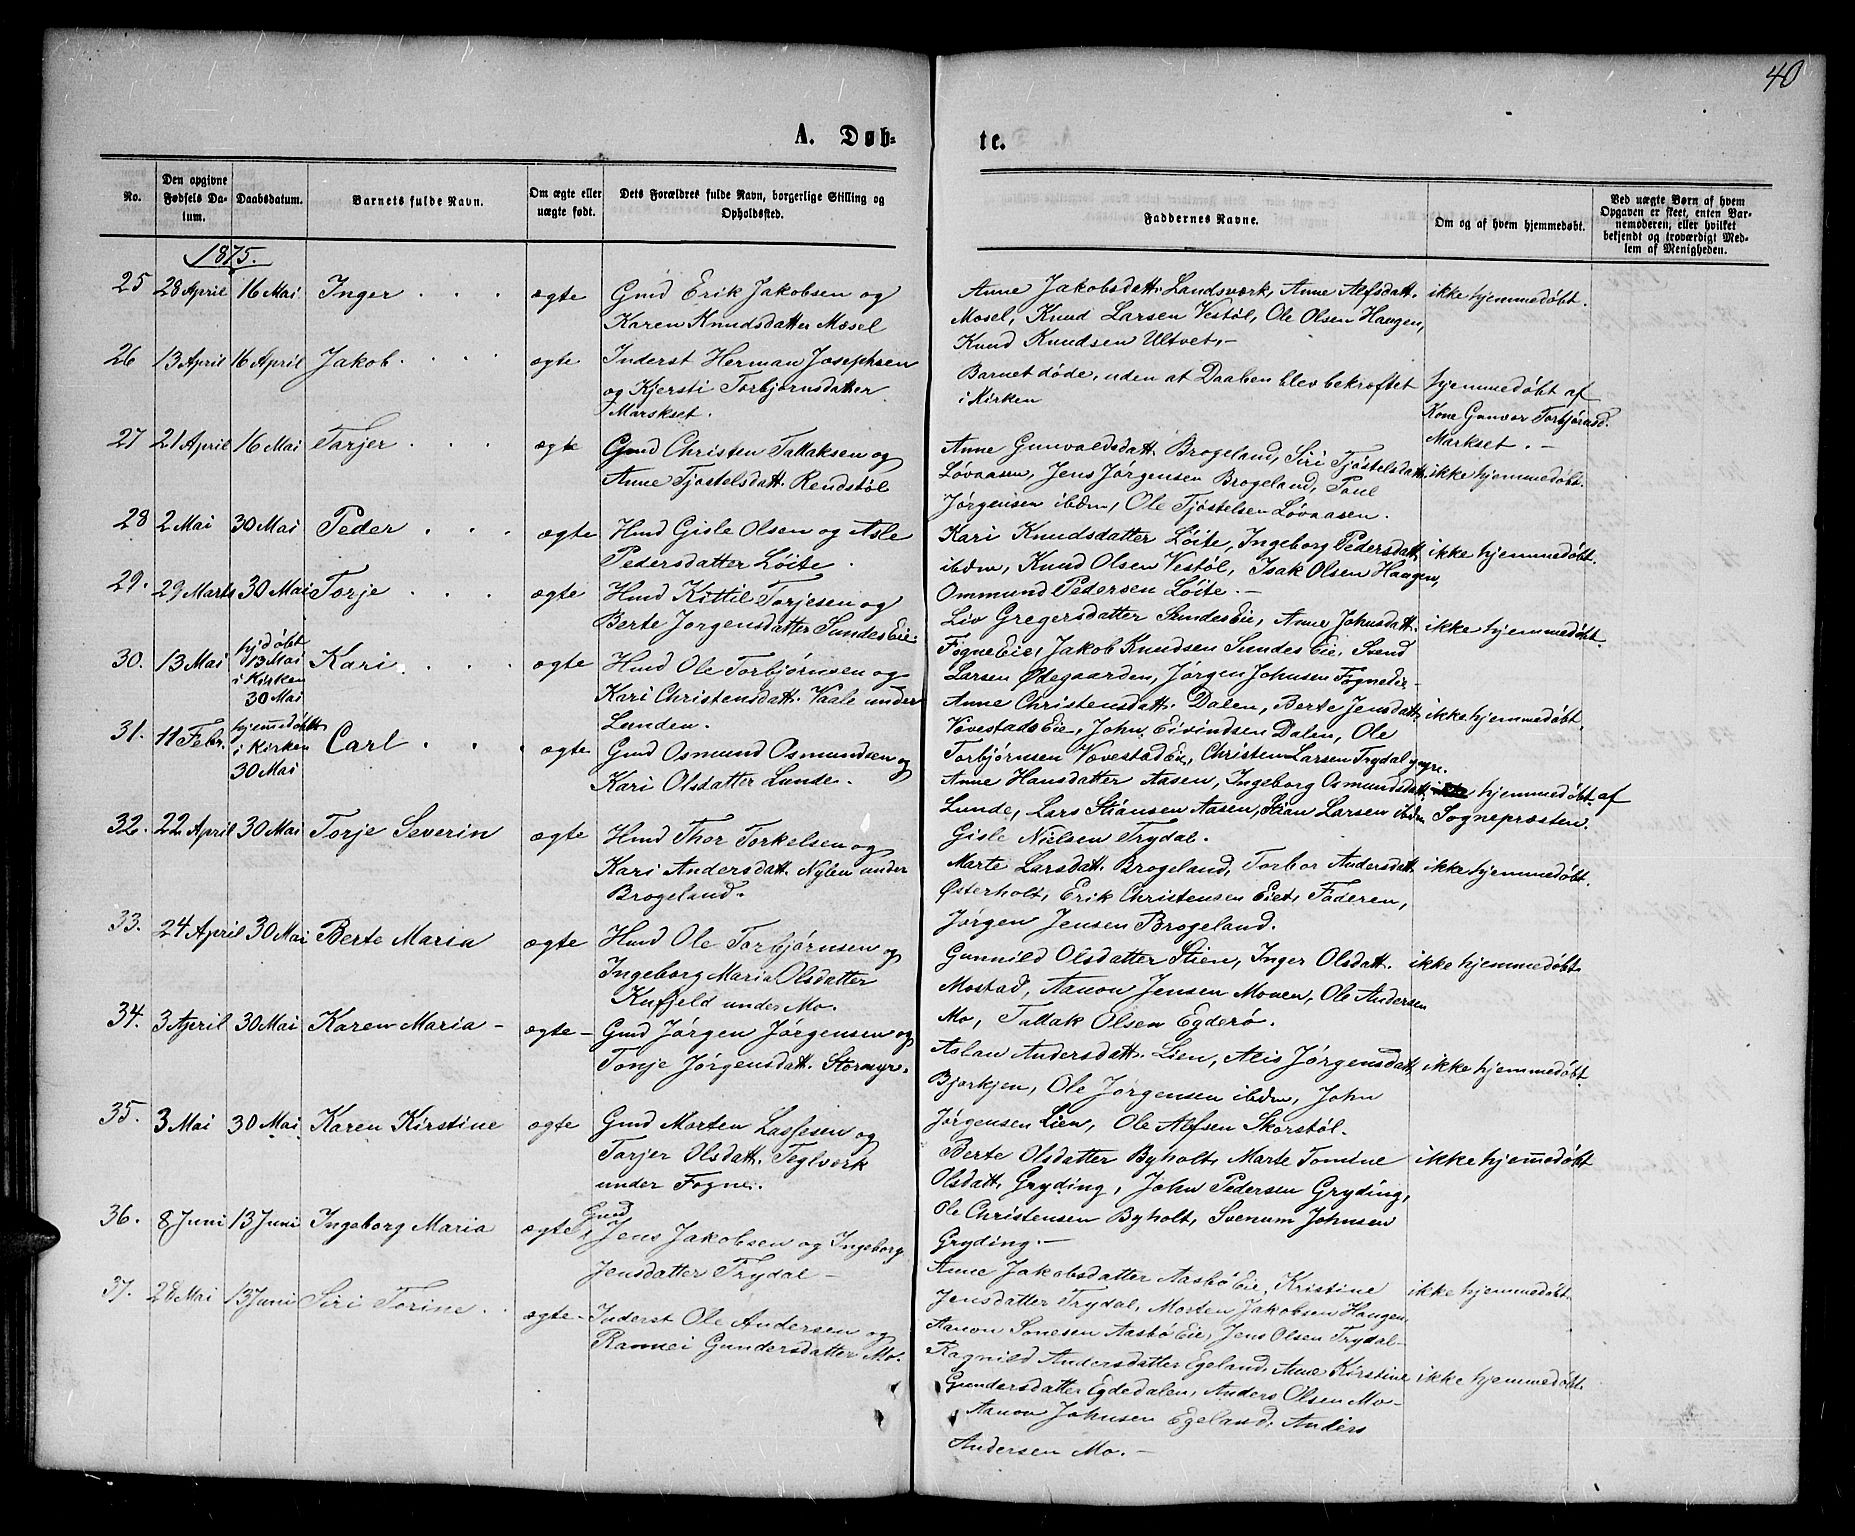 40
A. Døb-
te.
No.
Den opgivne Fødsels Datum.
Daabsdatum.
Barnets fulde Navn.
Om ægte eller uægte født.
Dets Forældres fulde Navn, borgerlige Stilling og Opholdssted.
Faddernes Navne.
Om og af hvem hjemmedøbt.
Ved uægte Børn af hvem Opgaven er skeet, enten Barnemoderen, eller hvilket bekjendt og troværdigt Medlem af Menigheden.
1875.
25 28 April 16 Mai Inger . . . ægte
Gmd Erik Jakobsen og
Karen Knudsdatter Mosel
Anne Jakobsdatt. Landsværk, Anne Alfsdatt.
Mosel, Knud Larsen Vestøl, Ole Olsen Haugen,
Knud Knudsen Ultvet,-
ikke hjemmedøbt.
26 13 April 16 April Jakob . . . ægte
Inderst Herman Josephsen
og Kjersti Torbjørnsdatter
Markset.
Barnet døde, uden at Daaben blev bekræftet
i Kirken
hjemmedøbt af
Kone Gunvor Torbjørnsd.
Markset.-
27 21 April 16 Mai Tarjer . . . ægte
Gmd Christen Tallaksen og
Anne Tjøstelsdatt. Rendstøl
Anne Gunvaldsdatt. Brogeland, Siri Tjøstelsdatt.
Løvaasen, Jens Jørgensen Brogeland, Poul
Jørgensen ibdm, Ole Tjøstelsen Løvaasen.
ikke hjemmedøbt.
28 2 Mai 30 Mai Peder . . . ægte
Hmd Gisle Olsen og Asle
Pedersdatter Løite.
Kari Knudsdatter Løite, Ingeborg Pedersdatt.
ibdm, Knud Olsen Vestøl, Isak Olsen Haugen,
Ommund Pedersen Løite.-
ikke hjemmedøbt.
29. 29 Marts 30 Mai Torje . . . ægte
Hmd Kittil Torjesen og
Berte Jørgensdatter Sundes Eie.
Liv Gregersdatter Sundes Eie, Anne Johnsdatt.
Fogne Eie, Jakob Knudsen Sundes Eie, Svend
Larsen Ødegaarden, Jørgen Johnsen Fogneeie-
ikke hjemmedøbt.
30. 13 Mai
hjdøbt
13 Mai
i Kirken
30 Mai
Kari . . . ægte
Hmd Ole Torbjørnsen og
Kari Christensdatt. Vaale under
Lunden.
Anne Christensdatt. Dalen, Berte Jensdatt.
Vævestads Eie, John Eivindsen Dalen, Ole
Torbjørnsen Vævestad Eie, Christen Larsen Trydal yngre.
ikke hjemmedøbt.
31. 11 Febr.
hjemmedøbt
i Kirken
30 Mai
Carl . . . ægte
Gmd Osmund Osmundsen og
Kari Olsdatter Lunde.
Anne Hansdatter Aasen, Ingeborg Osmundsdatt.
Lunde, Lars Stiansen Aasen, Stian Larsen ibdm
Gisle Nielsen Trydal.
hjemmedøbt af
Sognepræsten.
32. 22 April 30 Mai Torje Severin ægte
Hmd Thor Torkelsen og
Kari Andersdatt. Nylen under
Brogeland.
Marte Larsdatt. Brogeland, Torbor Andersdatt.
Østerholt, Erik Christensen Eiet, Faderen,
Jørgen Jensen Brogeland.
ikke hjemmedøbt.
33. 24 April 30 Mai Berte Maria ægte
Hmd Ole Torbjørnsen og
Ingeborg Maria Olsdatter
Knfjeld under Mo.
Gunnild Olsdatter Stien, Inger Olsdatt.
Mostad, Aanon Jensen Monen, Ole Andersen
Mo, Tallak Olsen Egderø.
ikke hjemmedøbt
34. 3 April 30 Mai Karen Maria - ægte -
Gmd Jørgen Jørgensen og
Tonje Jørgensdatt. Stormyr.
Aslau Andersdatt. Lien, Alis Jørgensdatt.
Bjørkjen, Ole Jørgensen ibdm, John
Jørgensen Lien, Ole Alfsen Skorstøl.
ikke hjemmedøbt.
35. 3 Mai 30 Mai Karen Kirstine ægte
Gmd Morten Lassesen og
Torjer Olsdatt. Teglværk
under Fogne.
Berte Olsdatter Byholt, Marte Tomine
Olsdatt. Gryding, John Pedersen Gryding,
Ole Christensen Byholt, Svenum Johnsen
Gryding.-
ikke hjemmedøbt
36. 8 Juni 13 Juni Ingeborg Maria ægte
Gmd
Jens Jakobsen og Ingeborg
Jensdatter Trydal -
Anne Jakobsdatter Aasbø Eie, Kristine
Jensdatter Trydal, Morten Jakobsen Haugen,
Aanon Sonesen Aasbø Eie, Jens Olsen Trydal-
ikke hjemmedøbt.
37. 28 Mai 13 Juni Siri Torine . . ægte -
Inderst Ole Andersen og
Rannei Gundersdatter Mo.
Ragnild Andersdatter Egeland, Anne Kirstine
Gundersdatter Egdedalen, Anders Olsen Mo-
Aanon Johnsen Egeland, Anders
Andersen Mo.-
ikke hjemmedøbt.